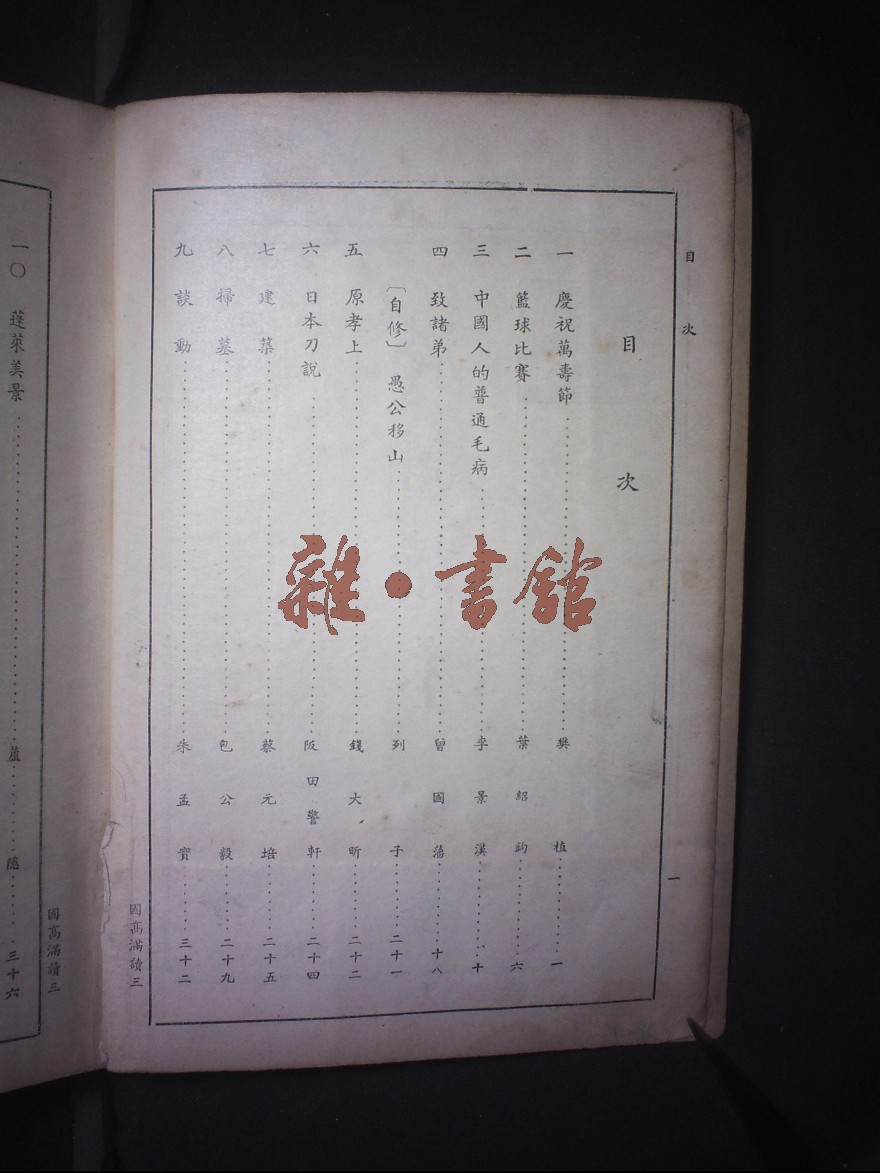 目次
一
目次
一 慶祝萬壽節……樊植……一
二 籃球比賽……葉紹鈞……六
三 中國人的普通毛病……李景漢……十
四 致諸弟……曾國藩……十八
〔自修〕 愚公移山……列子……二十一
五 原孝上……錢大昕……二十二
六 日本刀說……阪田警軒……二十四
七 建築……蔡元培……二十五
八 掃墓……包公毅……二十九
九 談動……朱孟實……三十二
國高滿讀三
一〇 蓬萊美景……盧隱……三十六
國高滿讀三
雜·書館